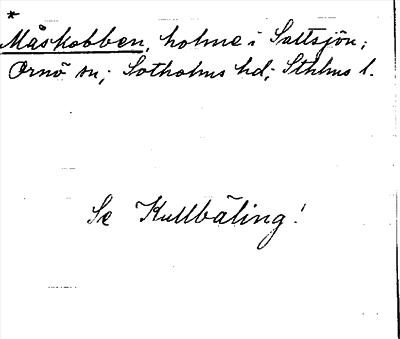 *
Måskobben, holme i Saltsjön;
Ornö sn; Sotholms hd; Sthlms l.
Se Kullbåling!